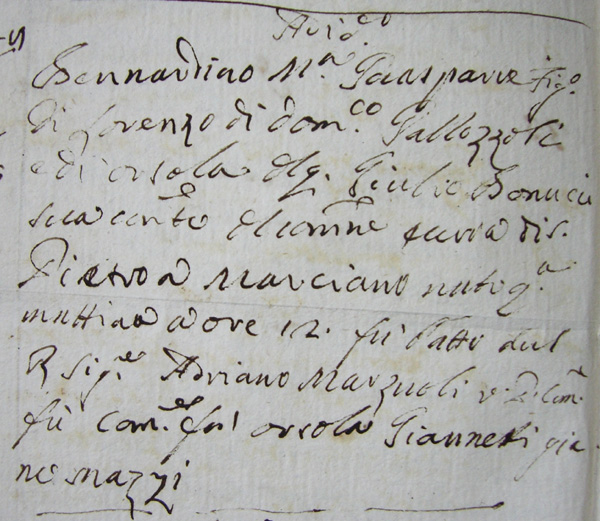 Adi d.o
Bernardino M.a Guasparre fig.o
di Lorenzo di dom.co Gallozzoli
e di orsola del q. Giulio Bonucci
sua con.te della cura di S.
Pietro a Marciano nato q.a
mattina a ore 12. fu batt.o dal
R Sig.re Adriano Marzuoli
fu Com.e fu orsola Giannetti gia
ne mazzi